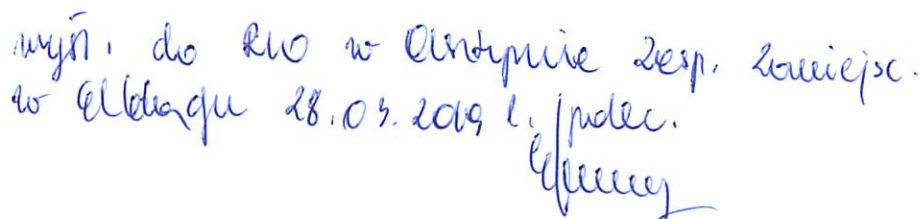 wysł. do RIO w Olsztynie Zesp. Zamiejsc.
w Elblągu 28.03.2019 r. /podec.